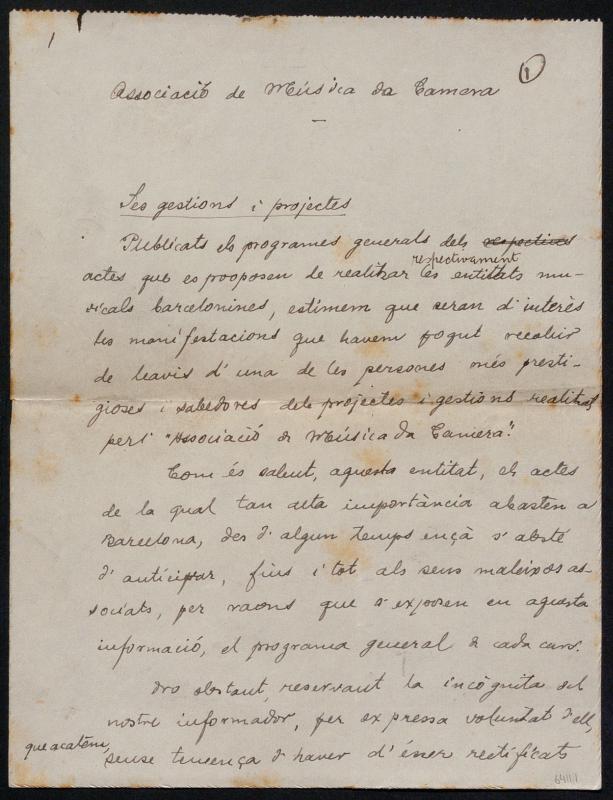 1
①
Associació de Música da Camera
Ses gestions i projectes
Publicats els programes generals dels respectius
respectivament
actes que es proposen de realitzar les entitats mu-
sicals barcelonines, estimem que seran d'interès
les manifestacions que havem pogut recollir
de llavis d'una de les persones més presti-
gioses i sabedores dels projectes i gestions realitzats
per l' "Associació de Música da Camera".
Com és sabut, aquesta entitat, els actes
de la qual tan alta importància abasten a
Barcelona, des d'algun temps ençà s'absté
d'anticipar, fins i tot als seus mateixos as-
sociats, per raons que s'exposen en aquesta
informació, el programa general de cada curs.
No obstant, reservant la incògnita del
nostre informador, per expressa voluntat d'ell,
que acatem,
sense temença d'haver d'ésser rectificats
6411/1